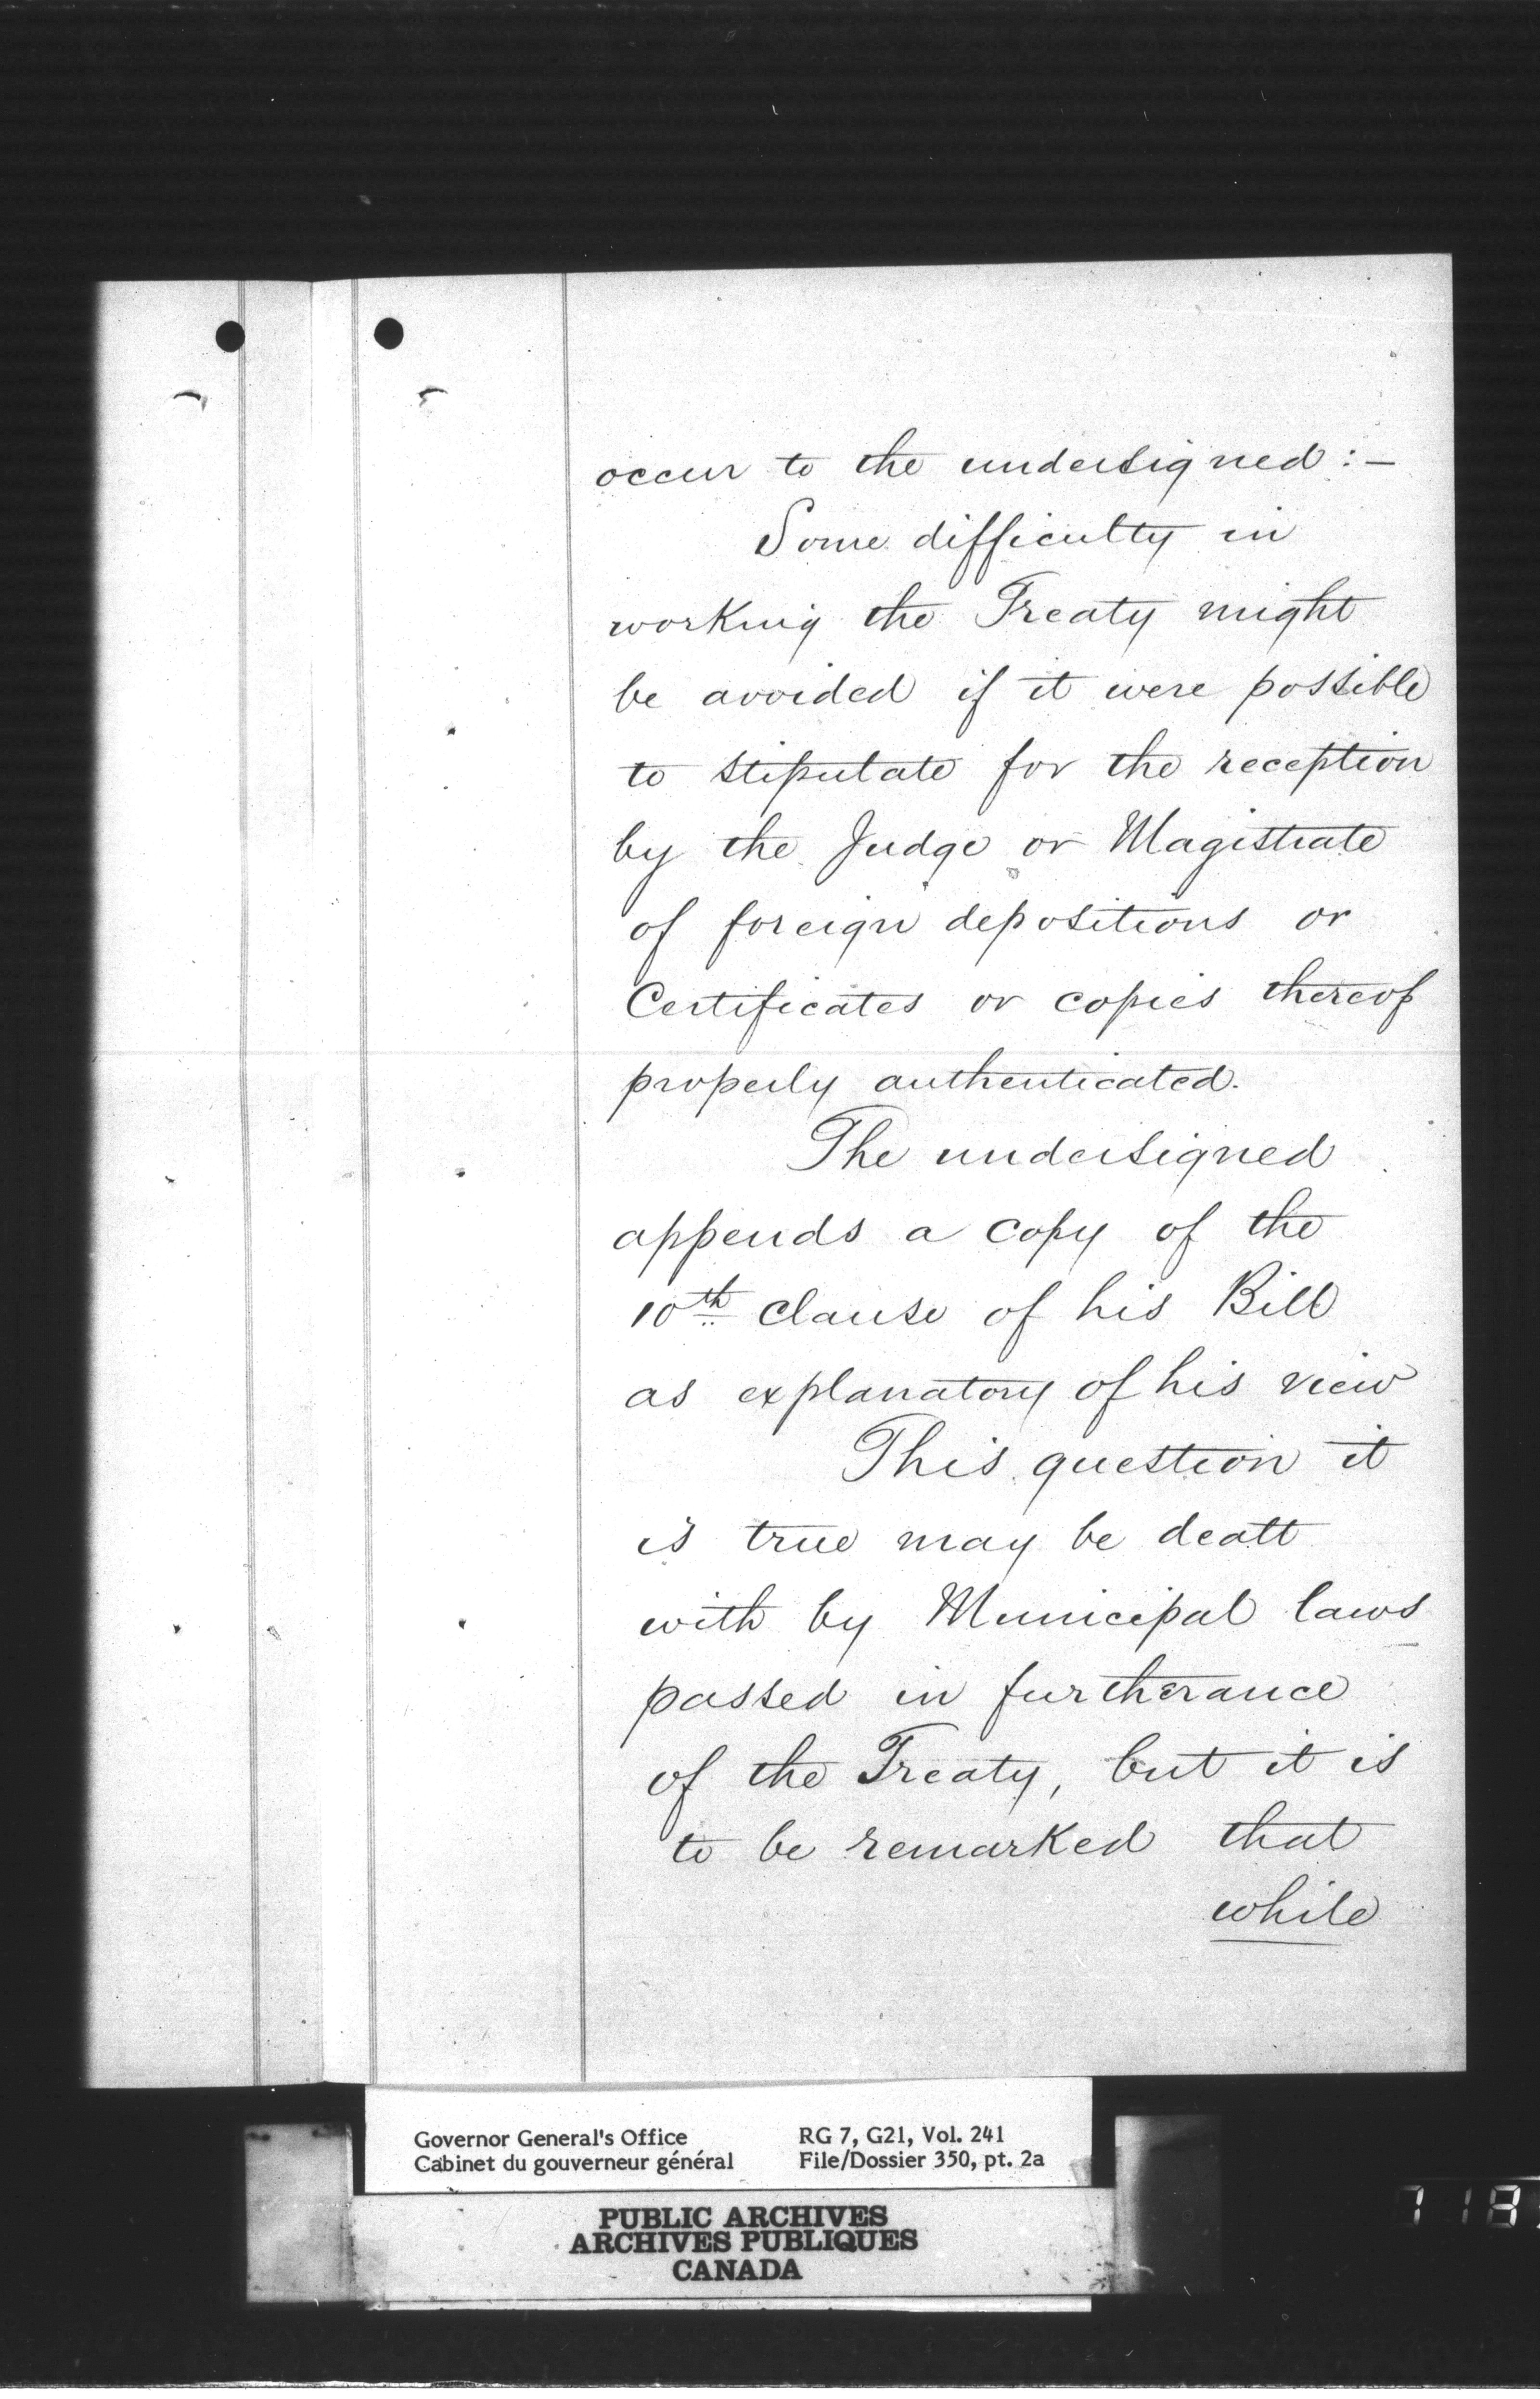 occur to the undersigned :-
Some difficulty in
working the Treaty might
be avoided if it were possible
to stipulate for the reception
by the Judge or Magistrate
of foreign depositions or
Certificates or copies thereof
properly authenticated.
The undersigned
appends a copy of the
10th clause of his Bill
as explanatory of his view
This question it
is true may be dealt
with by Municipal laws
passed in furtherance
of the Treaty, but it is
to be remarked that
while
Governor General's Office
Cabinet du gouverneur général
RG 7, G21, Vol. 241
File/Dossier 350, pt. 2a
PUBLIC ARCHIVES
ARCHIVES PUBLIQUES
CANADA